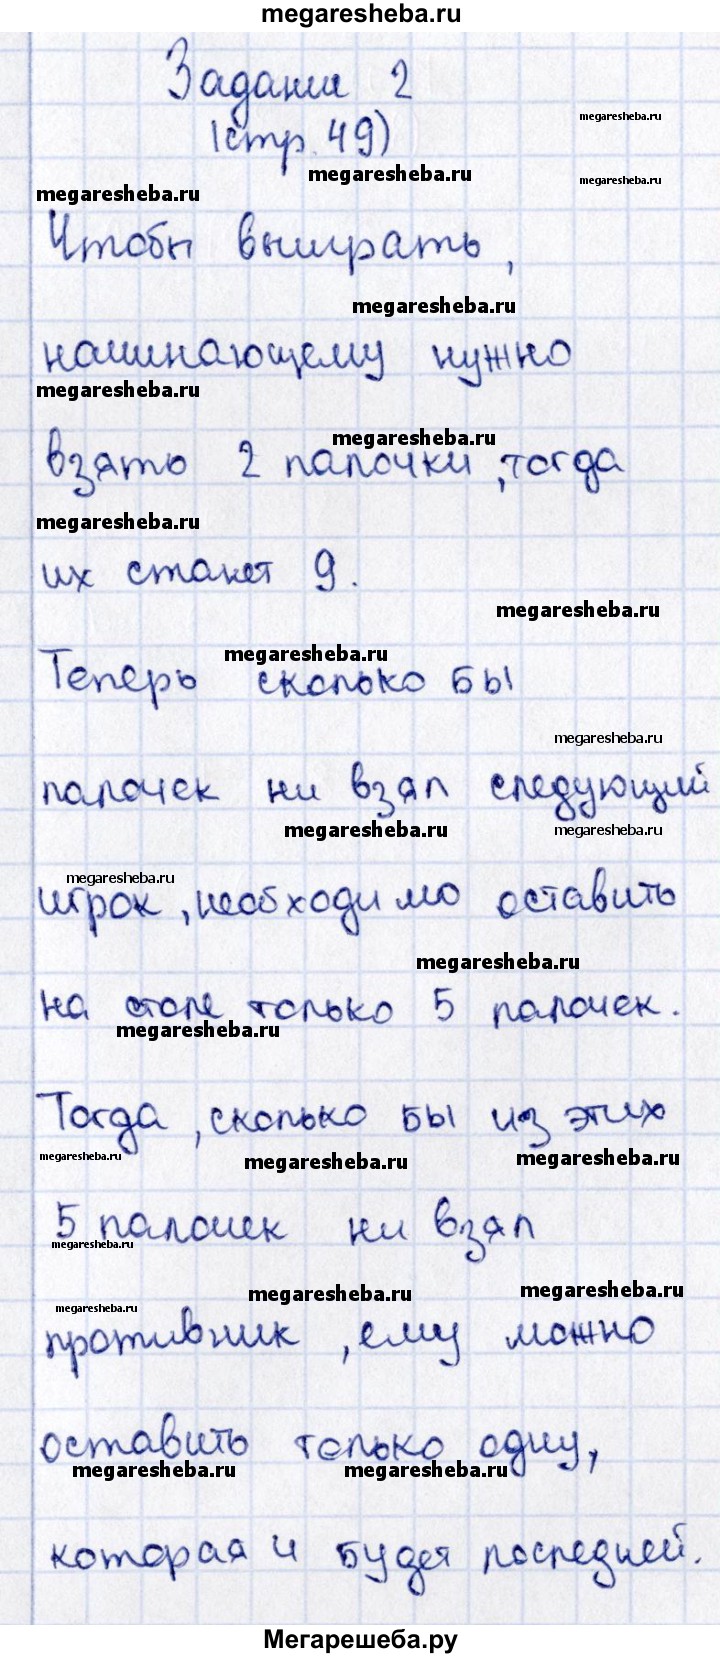 megaresheba.ru
Задание 2
(стр. 49)
megaresheba.ru
megaresheba.ru
megaresheba.ru
megaresheba.ru
Чтобы выиграть,
megaresheba.ru
начинающему нужно
megaresheba.ru
megaresheba.ru
взять 2 палочки, тогда
megaresheba.ru
их станет 9.
megaresheba.ru
megaresheba.ru
Теперь сколько бы
megaresheba.ru
палочек ни взял следующий
megaresheba.ru
megaresheba.ru
megaresheba.ru
игрок, необходимо оставить
megaresheba.ru
на столе только 5 палочек.
megaresheba.ru
Тогда, сколько бы из этих
megaresheba.ru
megaresheba.ru
megaresheba.ru
5 палочек ни взял
megaresheba.ru
megaresheba.ru
megaresheba.ru
megaresheba.ru
противник, ему можно
оставить только одну,
megaresheba.ru
megaresheba.ru
которая и будет последней.
Мегарешеба.ру